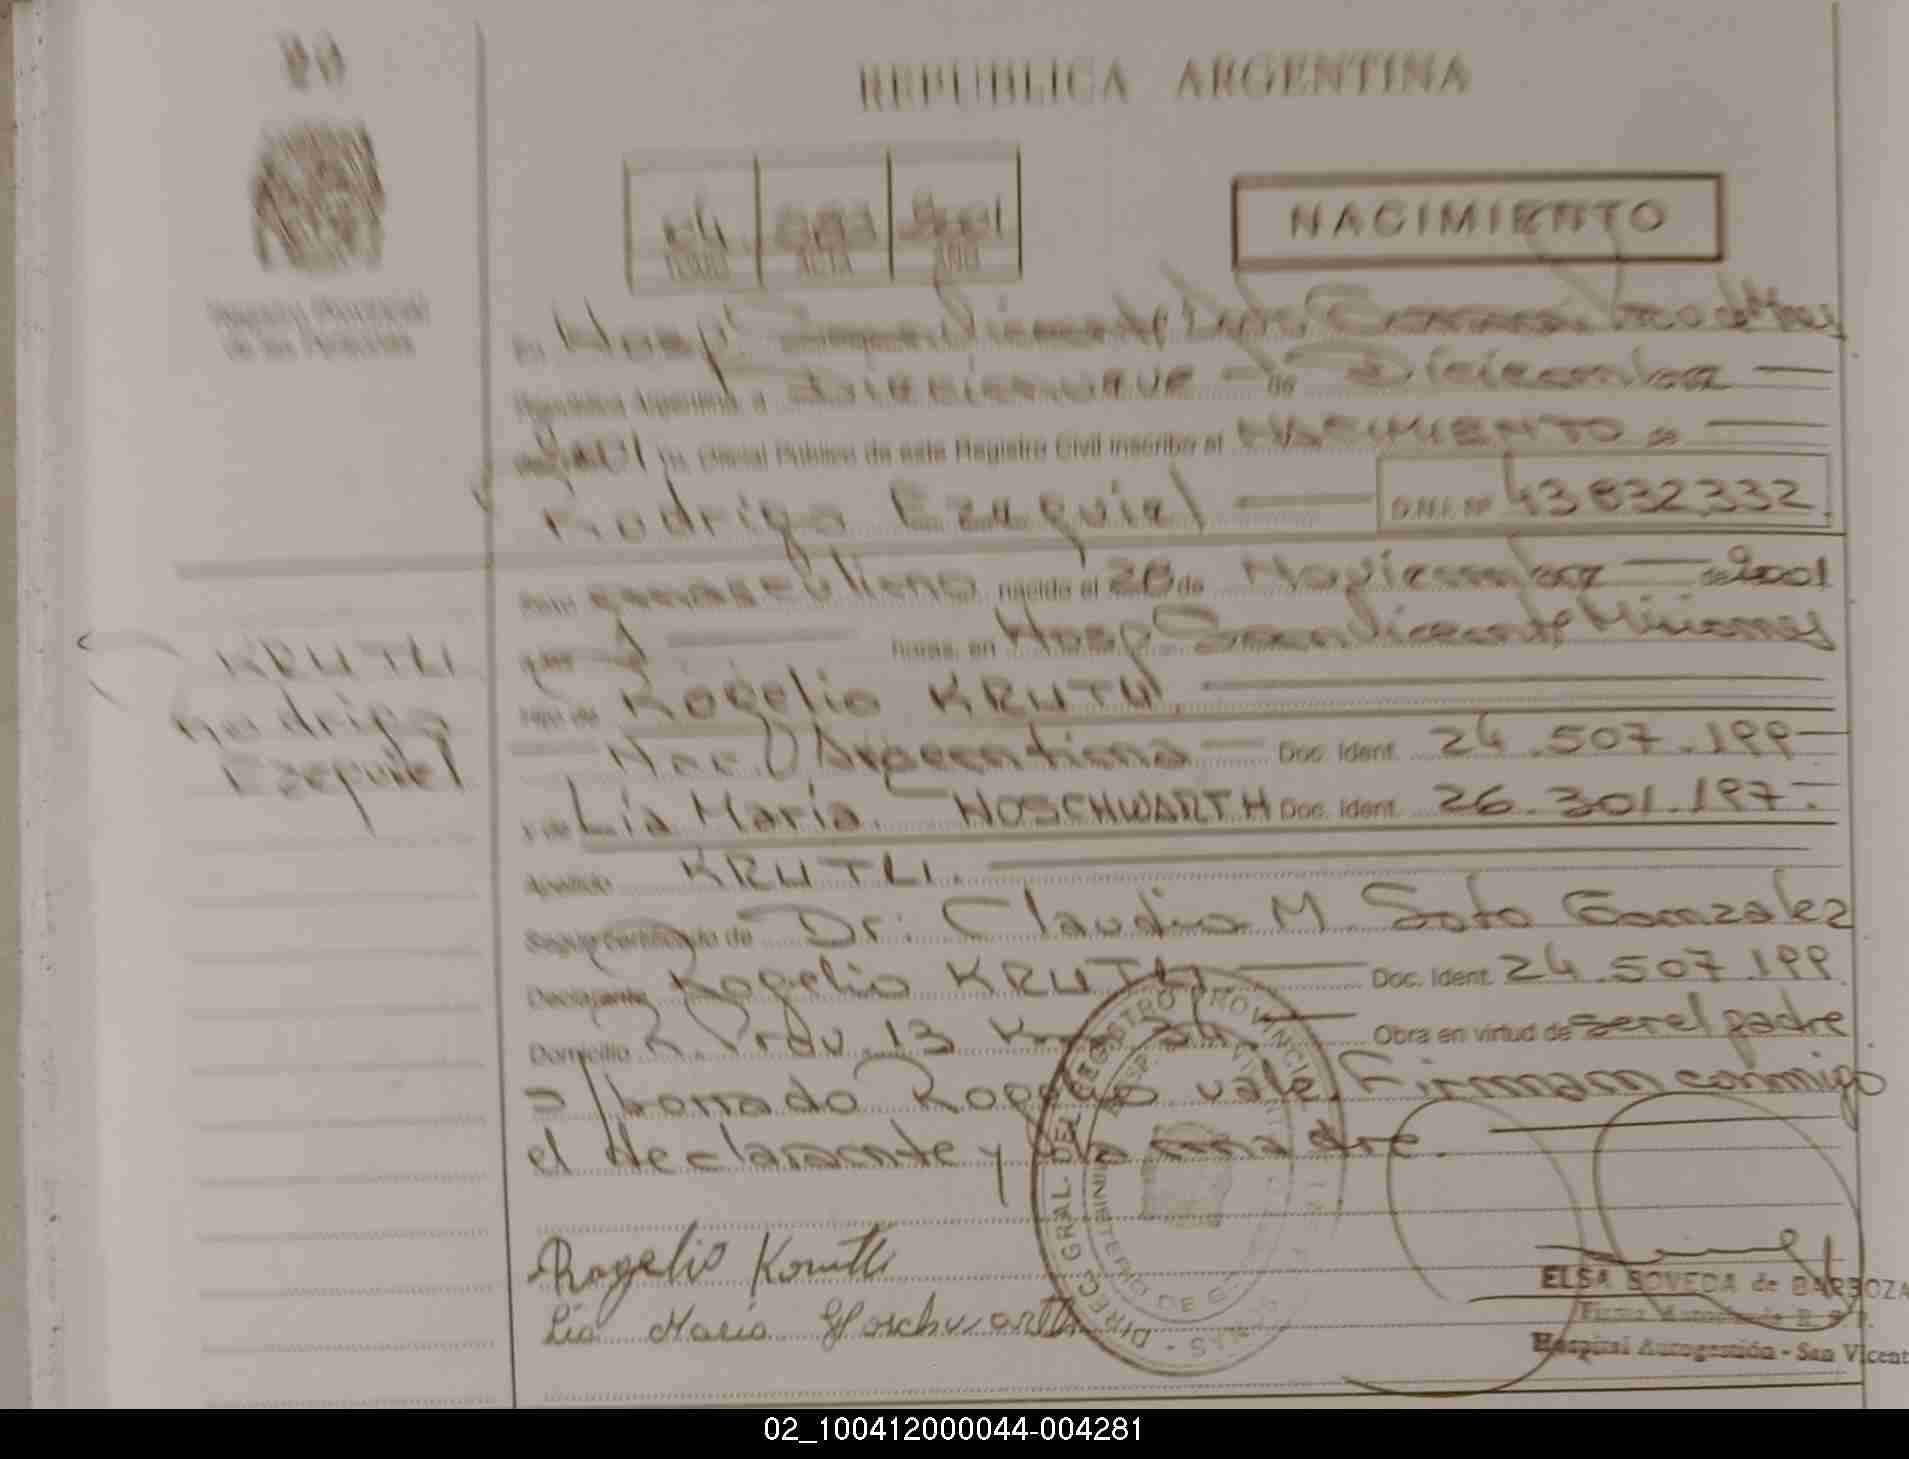 REPUBLICA ARGENTINA
TOMO ACTA AÑO
NACIMIENTO
Registro Provincial
de las Personas
En Hosp San Vicente Dpto Guaraní Pcia de Mnes
República Argentina a Diecinueve de Diciembre
de 2001 Yo, Oficial Público de este Registro Civil inscribo el NACIMIENTO de
Rodrigo Ezequiel D.N.I. Nº 43832332
Sexo masculino nacido el 28 de Noviembre de 2001
horas, en Hosp San Vicente Misiones
KRUTLI
Rodrigo
Ezequiel
hijo de Rogelio KRUTLI,
Nac. Argentina Doc. Ident. 24.507.199
y de Lia Maria HOSCHWARTH Doc. Ident. 26.301.197
Apellido KRUTLI.
Según certificado de Dr. Claudio M. Soto Gonzalez
Declarante Rogelio KRUTLI Doc. Ident. 24.507.199
Domicilio R. Prov. 13 Km Obra en virtud de ser el padre
= borrado Rogelio vale. Firman conmigo
el declarante y la madre.
DIRECC. GRAL. DEL REGISTRO PROVINCIAL
MINISTERIO DE G
Rogelio Krutli
Lia Maria Hoschwarth
ELSA BOVEDA de BARBOZA
Firma Autorizada
Hospital Autogestión - San Vicent
02_100412000044-004281